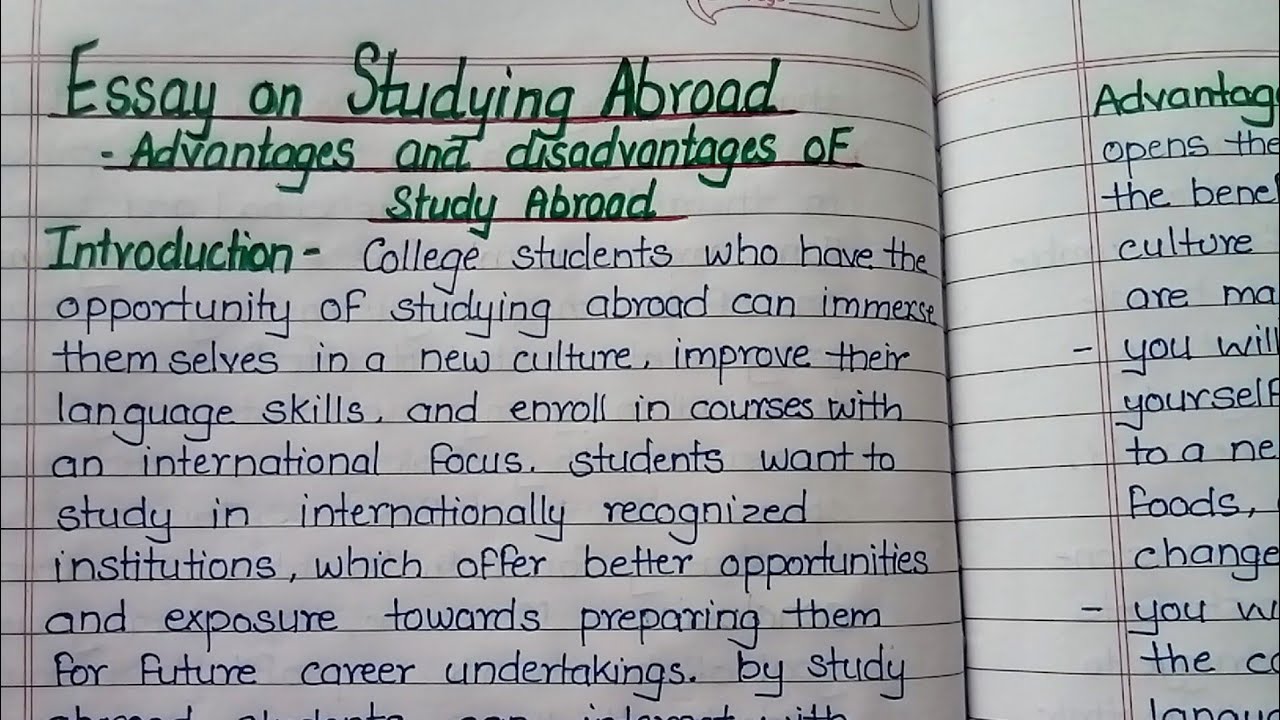 Essay on Studying Abroad
- Advantages and disadvantages of
Study Abroad
Introduction - College students who have the
opportunity of studying abroad can immerse
themselves in a new culture, improve their
language skills, and enroll in courses with
an international focus. students want to
study in internationally recognized
institutions, which offer better opportunities
and exposure towards preparing them
for future career undertakings. by study
abroad students can interact with
Advantag
opens the
the bene
culture
are ma
- you will
yourself
to a ne
foods,
change
- you w
the co
langu